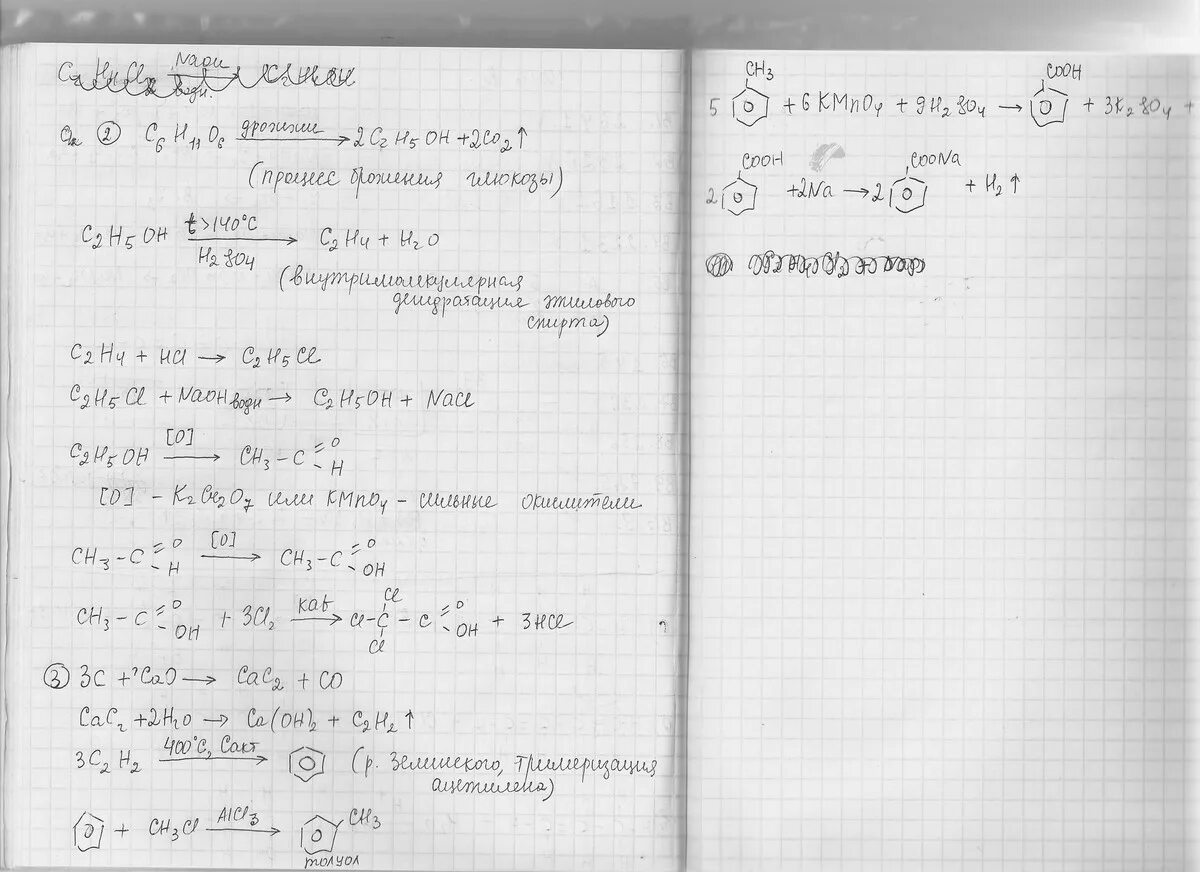 ② C₆H₁₁O₆ —дрожжи→ 2C₂H₅OH + 2CO₂↑
(процесс брожения глюкозы)
C₂H₅OH —t>140°C, H₂SO₄→ C₂H₄ + H₂O
(внутримолекулярная
дегидратация этилового
спирта)
C₂H₄ + HCl → C₂H₅Cl
C₂H₅Cl + NaOH водн → C₂H₅OH + NaCl
C₂H₅OH —[O]→ CH₃–C =O –H
[O] – K₂Cr₂O₇ или KMnO₄ – сильные окислители
CH₃–C =O –H —[O]→ CH₃–C =O –OH
CH₃–C =O –OH + 3Cl₂ —kat→ Cl–C Cl Cl –C =O –OH + 3HCl
③ 3C + CaO → CaC₂ + CO
CaC₂ + 2H₂O → Ca(OH)₂ + C₂H₂↑
3C₂H₂ —400°C, Cакт→ (р. Зелинского, тримеризация
ацетилена)
+ CH₃Cl —AlCl₃→ CH₃
толуол
CH₃ COOH
5 + 6KMnO₄ + 9H₂SO₄ → + 3K₂SO₄ +
COOH COONa
2 + 2Na → 2 + H₂↑